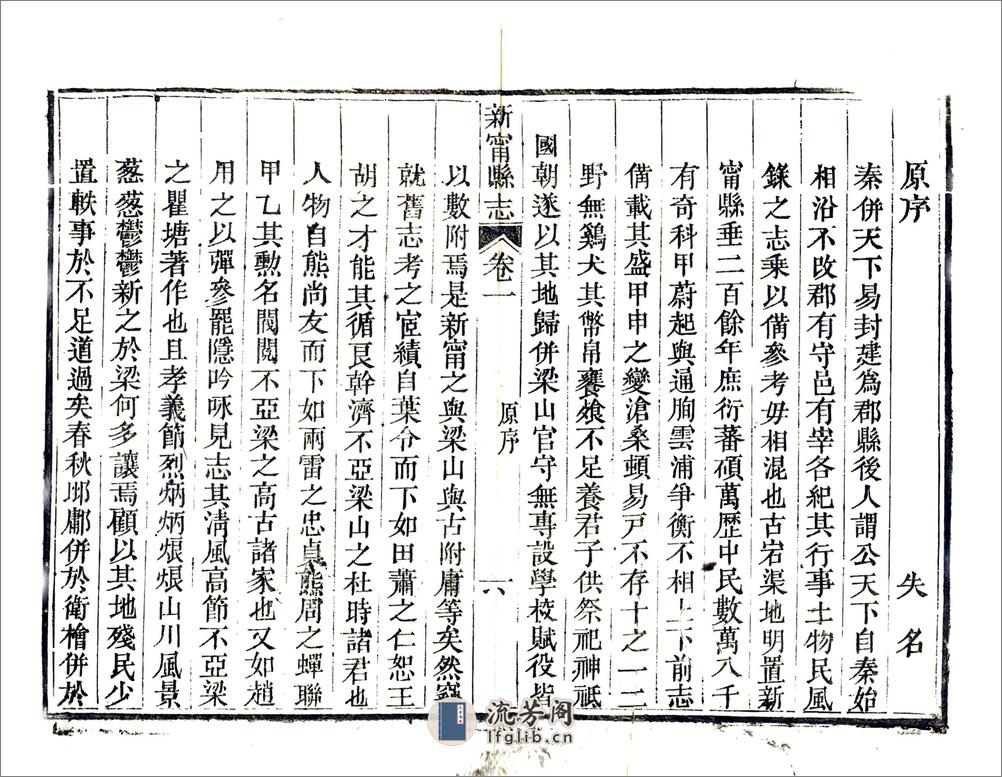 原序　　　　失名
秦併天下易封建爲郡縣後人謂公天下自秦始
相沿不改郡有守邑有宰各紀其行事土物民風
錄之志乘以備參考毋相混也古宕渠地明置新
甯縣垂二百餘年庶衍蕃碩萬歷中民數萬八千
有奇科甲蔚起與通朐雲浦爭衡不相上下前志
備載其盛甲申之變滄桑頓易戸不存十之一二
野無鷄犬其幣帛饔飱不足養君子供祭祀神祗
國朝遂以其地歸併梁山官守無專設學校賦役皆
新甯縣志　卷一　原序　六
以數附焉是新甯之與梁山與古附庸等矣然竊
就舊志考之宦績自葉令而下如田蕭之仁恕王
胡之才能其循良幹濟不亞梁山之杜時諸君也
人物自熊尚友而下如兩雷之忠貞熊周之蟬聯
甲乙其勲名閥閱不亞梁之高古諸家也又如趙
用之以彈參罷隱吟咏見志其淸風高節不亞梁
之瞿塘著作也且孝義節烈炳炳烺烺山川風景
葱葱鬱鬱新之於梁何多讓焉顧以其地殘民少
置軼事於不足道過矣春秋邶鄘併於衛檜併於
流芳阁
lfglib.cn